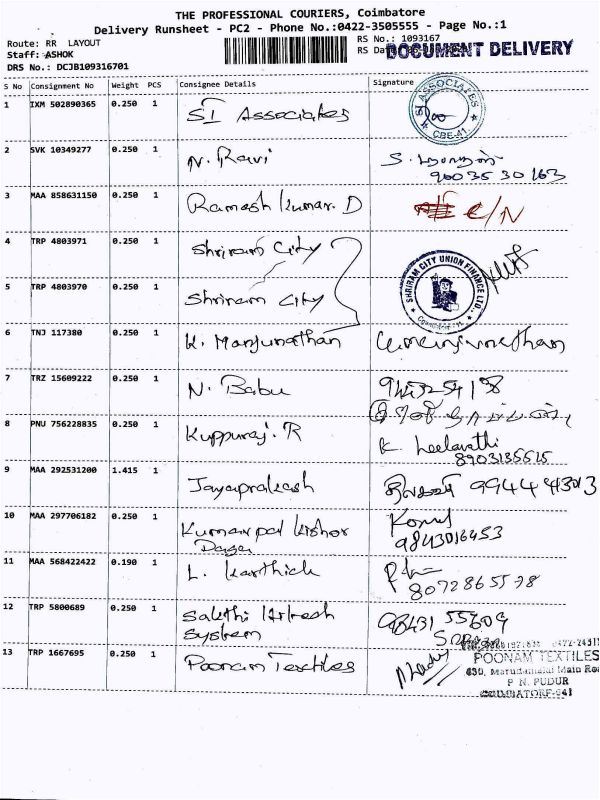 THE PROFESSIONAL COURIERS, Coimbatore
Delivery Runsheet - PC2 - Phone No.:0422-3505555 - Page No.:1
Route: RR LAYOUT
RS No.: 1093167
Staff: ASHOK
RS Da
DOCUMENT DELIVERY
DRS No.: DCJB109316701
S No Consignment No Weight PCS Consignee Details Signature
1 IXM 502890365 0.250 1 SI Associates
SI ASSOCIATES
CBE-41
2 SVK 10349277 0.250 1 N. Ravi
90035 30163
3 MAA 858631150 0.250 1 Ramesh Kumar. D C/N
4 TRP 4803971 0.250 1 Shriram City
5 TRP 4803970 0.250 1 Shriram City
SHRIRAM CITY UNION FINANCE LTD.,
6 TNJ 117380 0.250 1 K. Manjunathan
7 TRZ 15609222 0.250 1 N. Babu
8 PNU 756228835 0.250 1 Kuppuraj. R K. Leelavathi
8903135515
9 MAA 292531200 1.415 1 Jayaprakash 9944443013
10 MAA 297706182 0.250 1 Kumarpal Kishor
Daga
9843016453
11 MAA 568422422 0.190 1 L. Karthick
12 TRP 5800689 0.250 1 Sakthi
System
98431 55609
13 TRP 1667695 0.250 1 Poonam Textiles
POONAM TEXTILES
630, Marudamalai Main Roa
P. N. PUDUR
COIMBATORE-641